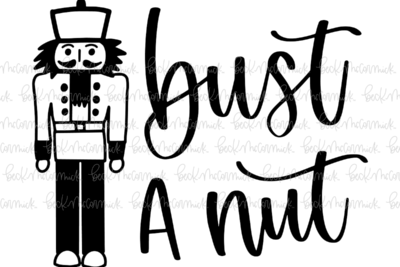 bust
A nut